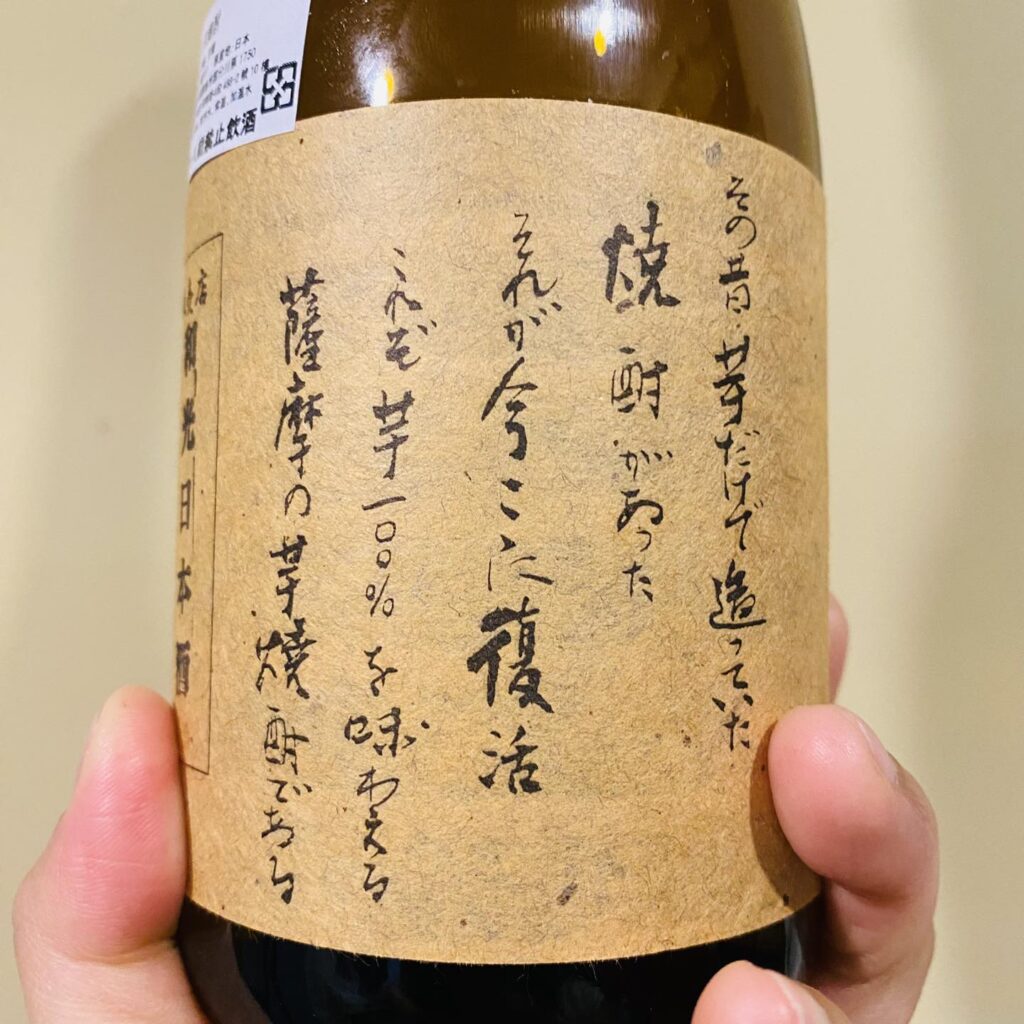 その昔芋だけで造っていた
焼酎があった
それが今ここに復活
これぞ芋一〇〇%を味わえる
薩摩の芋焼酎である
店
光日本酒
日本
1750
10
加溫水
禁止飲酒